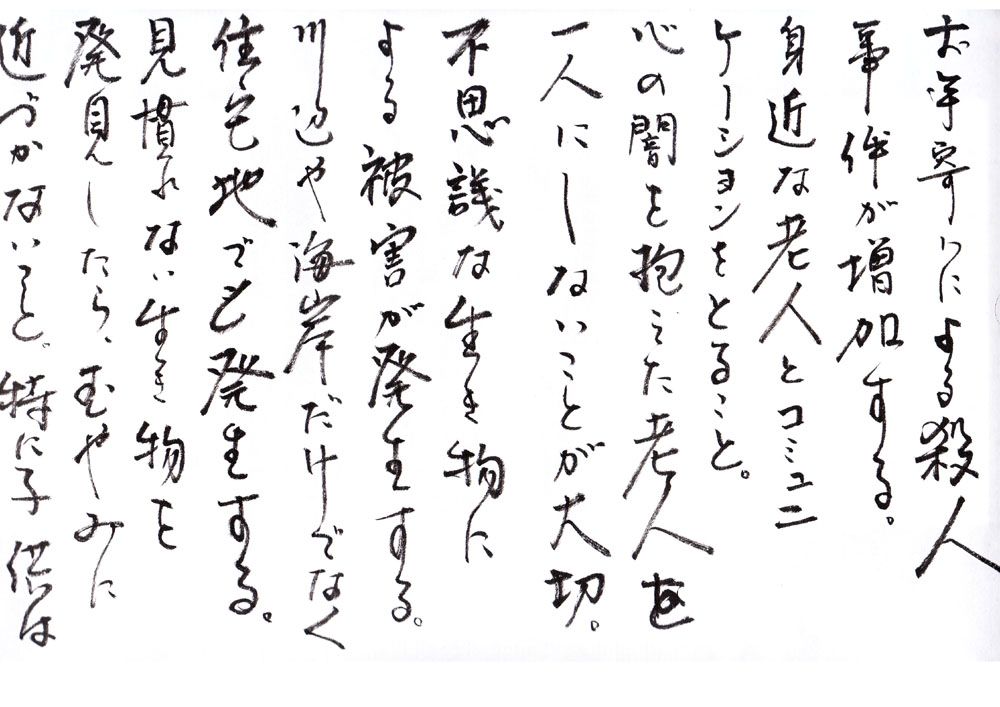 お年寄りによる殺人
事件が増加する。
身近な老人とコミュニ
ケーションをとること。
心の闇を抱えた老人を
一人にしないことが大切。
不思議な生き物に
よる被害が発生する。
川辺や海岸だけでなく
住宅地でも発生する。
見慣れない生き物を
発見したら、むやみに
近づかないこと。特に子供は